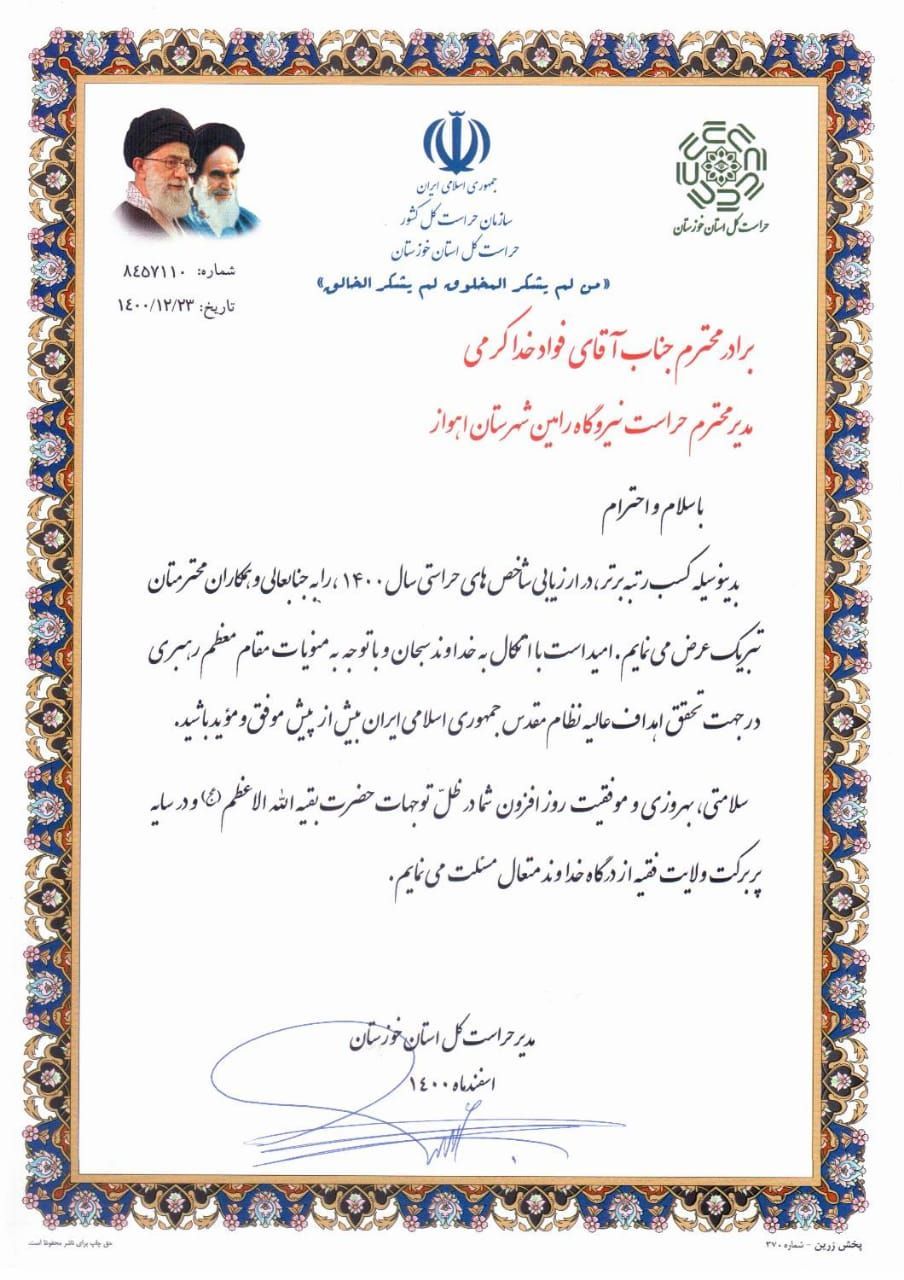 جمهوری اسلامی ایران
سازمان حراست کل کشور
حراست کل استان خوزستان
حراست کل استان خوزستان
«من لم یشکر المخلوق لم یشکر الخالق»
شماره: ۸٤۵۷۱۱۰
تاریخ: ۱٤۰۰/۱۲/۲۳
برادر محترم جناب آقای فواد خداکرمی
مدیر محترم حراست نیروگاه رامین شهرستان اهواز
با سلام و احترام
بدینوسیله کسب رتبه برتر، در ارزیابی شاخص های حراستی سال ۱۴۰۰، را به جنابعالی و همکاران محترمتان
تبریک عرض می نمایم. امید است با اتکال به خداوند سبحان و با توجه به منویات مقام معظم رهبری
در جهت تحقق اهداف عالیه نظام مقدس جمهوری اسلامی ایران بیش از پیش موفق و مؤید باشید.
سلامتی، بهروزی و موفقیت روز افزون شما در ظلّ توجهات حضرت بقیه الله الاعظم (عج) و در سایه
پربرکت ولایت فقیه از درگاه خداوند متعال مسئلت می نمایم.
مدیر حراست کل استان خوزستان
اسفند ماه ۱۴۰۰
پخش زرین - شماره ۳۷۰
حق چاپ برای ناشر محفوظ است.